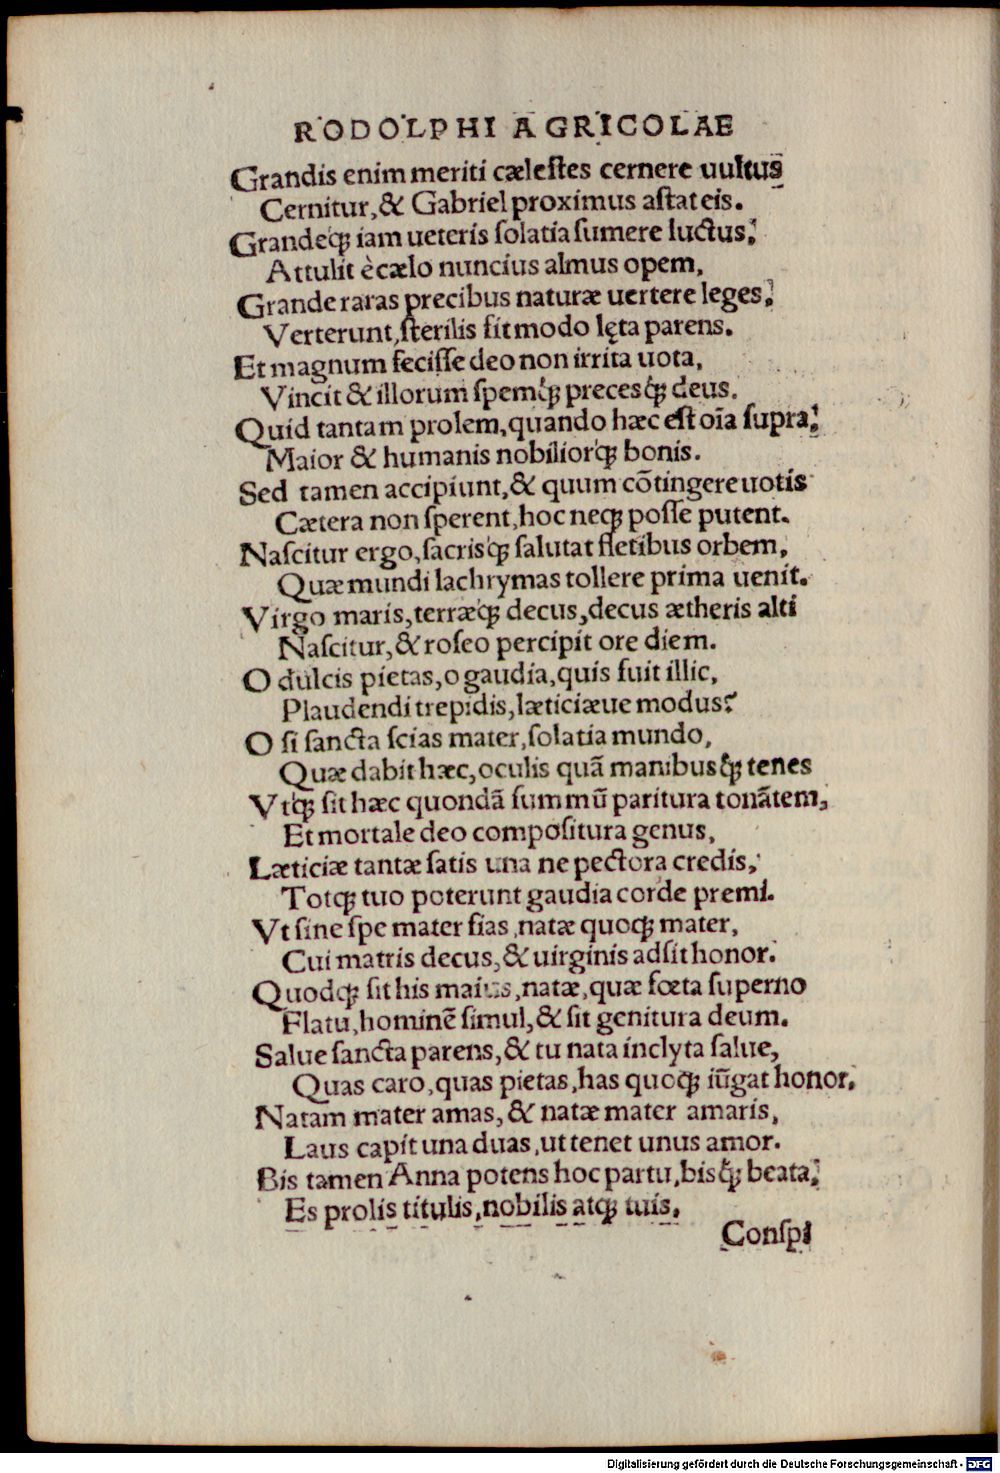 RODOLPHI AGRICOLAE
Grandis enim meriti cælestes cernere uultus
Cernitur, & Gabriel proximus astat eis.
Grandeqꝫ iam ueteris solatia sumere luctus,
Attulit è cælo nuncius almus opem,
Grande raras precibus naturæ uertere leges,
Verterunt, sterilis fit modo lęta parens.
Et magnum fecisse deo non irrita uota,
Vincit & illorum spemqꝫ precesqꝫ deus.
Quid tantam prolem, quando hæc est oīa supra,
Maior & humanis nobiliorqꝫ bonis.
Sed tamen accipiunt, & quum cōtingere uotis
Cætera non sperent, hoc neqꝫ posse putent.
Nascitur ergo, sacrisqꝫ salutat fletibus orbem,
Quæ mundi lachrymas tollere prima uenit.
Virgo maris, terræqꝫ decus, decus ætheris alti
Nascitur, & roseo percipit ore diem.
O dulcis pietas, o gaudia, quis fuit illic,
Plaudendi trepidis, læticiæue modus?
O si sancta scias mater, solatia mundo,
Quæ dabit hæc, oculis quā manibusqꝫ tenes
Vtqꝫ sit hæc quondā summū paritura tonātem,
Et mortale deo compositura genus,
Læticiæ tantæ satis una ne pectora credis,
Totqꝫ tuo poterunt gaudia corde premi.
Vt sine spe mater fias, natæ quoqꝫ mater,
Cui matris decus, & uirginis adsit honor.
Quodqꝫ sit his maius, natæ, quæ fœta superno
Flatu, hominē simul, & sit genitura deum.
Salue sancta parens, & tu nata inclyta salue,
Quas caro, quas pietas, has quoqꝫ iūgat honor.
Natam mater amas, & natæ mater amaris,
Laus capit una duas, ut tenet unus amor.
Bis tamen Anna potens hoc partu, bisqꝫ beata,
Es prolis titulis, nobilis atqꝫ tuis.
Conspi
Digitalisierung gefördert durch die Deutsche Forschungsgemeinschaft - DFG